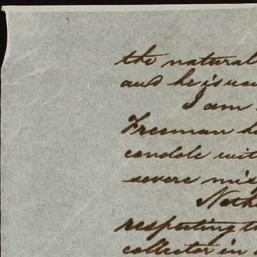 the natural
and he is
I am
Freeman
condole wit
severe mis
Noth
respecting t
collector in